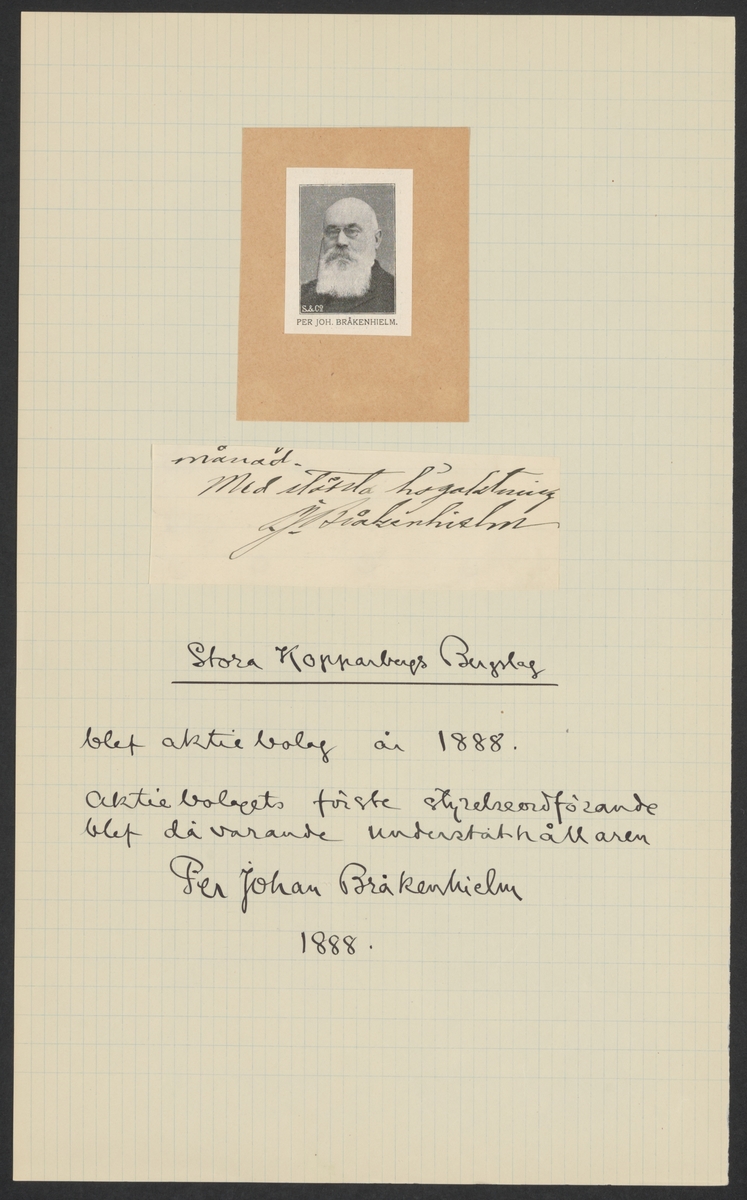 S.& Co
PER JOH. BRÅKENHIELM.
månad.
Med största högaktning
PJ Bråkenhielm
Stora Kopparbergs Bergslag
blef aktiebolag år 1888.
Aktiebolagets förste styrelseordförande
blef dåvarande underståthållaren
Per Johan Bråkenhielm
1888.